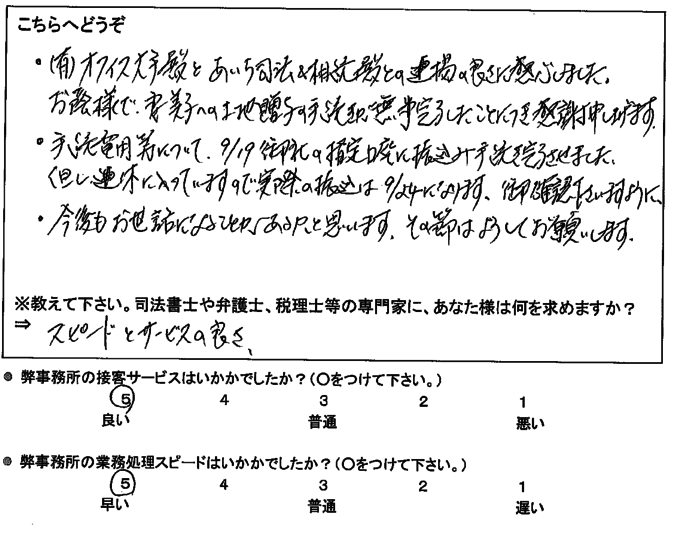 こちらへどうぞ
・(有)オフィス大手殿とあいち司法&相続殿との連携の良さに感心しました。
お蔭様で、妻美子への土地贈与の手続きが無事完了したことにつき感謝申し上げます。
・手続費用等について、9/19 御社の指定口座に振込み手続を完了させました。
但し連休に入っていますので実際の振込は 9/24になります。御確認下さいますように。
・今後もお世話になることがあるかと思います。その節はよろしくお願いします。
※教えて下さい。司法書士や弁護士、税理士等の専門家に、あなた様は何を求めますか？
⇒ スピードとサービスの良さ、
● 弊事務所の接客サービスはいかかでしたか？(〇をつけて下さい。)
5 4 3 2 1
良い 普通 悪い
● 弊事務所の業務処理スピードはいかかでしたか？(〇をつけて下さい。)
5 4 3 2 1
早い 普通 遅い